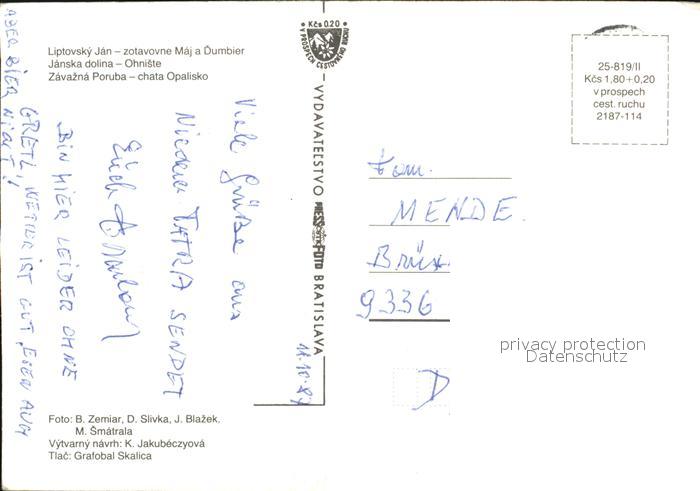 Liptovský Ján – zotavovne Máj a Ďumbier
Jánska dolina – Ohnište
Závažná Poruba – chata Opalisko
Kčs 0.20
V PROSPECH CESTOVNÉHO RUCHU
VYDAVATEĽSTVO PRESSFOTO BRATISLAVA
25-819/II
Kčs 1,80+0,20
v prospech
cest. ruchu
2187-114
Viele Grüße aus
Niedere TATRA SENDET
Euch
BIN HIER LEIDER OHNE
GRETL, WETTER IST GUT, ESSEN AUCH
ABER BIER NICHT!
11.10.87
Fam.
MENDE.
9336
D
privacy protection
Datenschutz
Foto: B. Zemiar, D. Slivka, J. Blažek,
M. Šmátrala
Výtvarný návrh: K. Jakubéczyová
Tlač: Grafobal Skalica